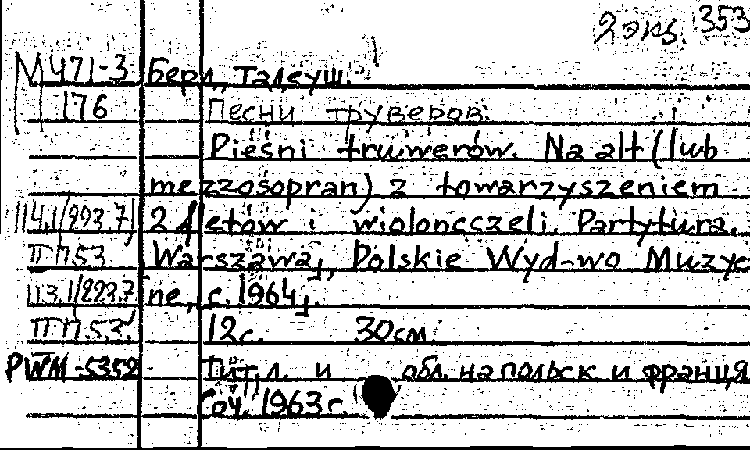 2 экз. 353
М471-3 Берд, Тадеуш.
176 Песни труверов.
Pieśni truwerów. Na alt (lub
mezzosopran) z towarzyszeniem
114.1/993.7 2 fletów i wiolonczeli. Partytura.
ПП.53 Warszawa, Polskie Wyd-wo Muzycz
113.1/223.7 ne, c. 1964.
ПП.53. 12с. 30см.
PWM-5352 Тит.л. и обл. на польск и франц
Соч. 1963 г.